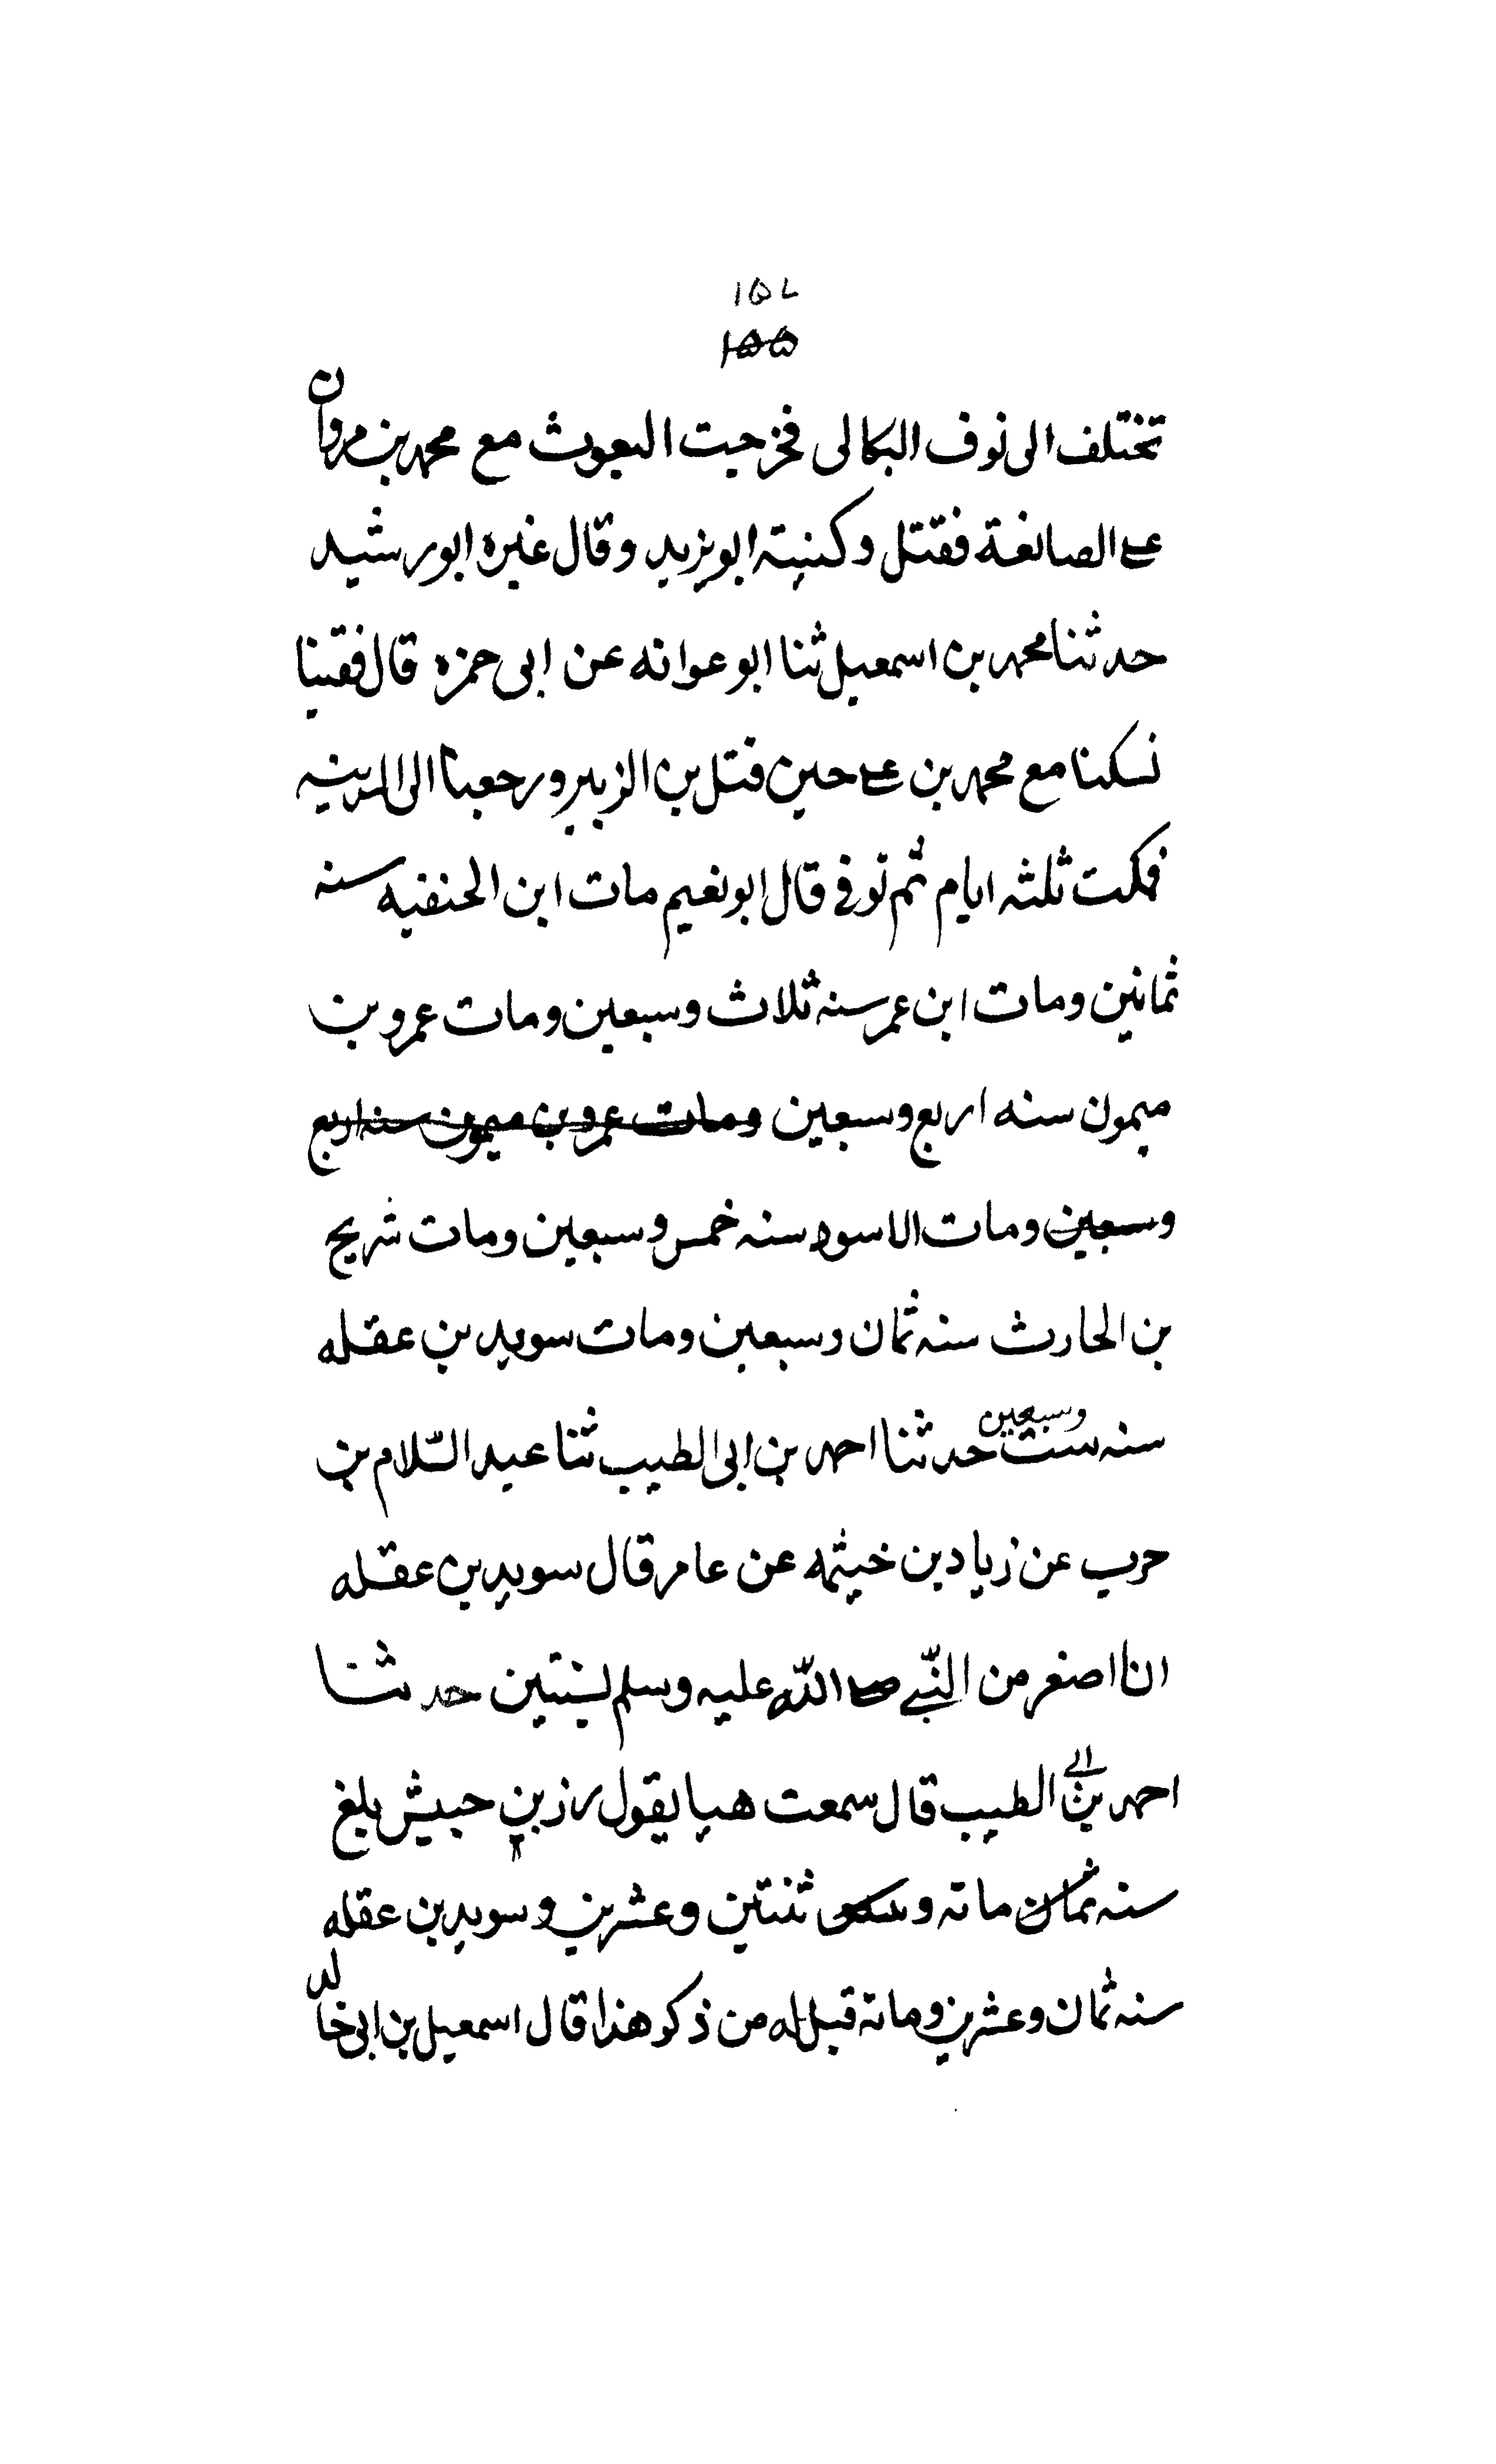 ١٥٧
١٥٥
تختلف الى نوف البكالى فخرجت البعوث مع محمد بن مروان
على الصائفة فقتل وكنيته ابو يزيد وقال غيره ابو رشيد
حدثنا محمد بن اسمعيل ثنا ابو عوانه عن ابى حمزه قال فقينا
نسكنا مع محمد بن على حين قتل بن الزبير ورجعنا الى المدينه
فمكث ثلثه ايام ثم توفى قال ابو نعيم مات ابن الحنفيه سنه
ثمانين ومات ابن عمر سنه ثلاث وسبعين ومات عمرو بن
ميمون سنه اربع وسبعين ومات عمرو بن ميمون سنه اربع
وسبعين ومات الاسود سنه خمس وسبعين ومات شريح
بن الحارث سنه ثمان وسبعين ومات سويد بن عقله
سنه ست وسبعين حدثنا احمد بن ابى الطيب ثنا عبد السّلام بن
حرب عن زياد بن خيثمه عن عامر قال سويد بن عقله
انا اصغر من النّبى صلى اللّه عليه وسلم بسنتين حدثنا
احمد بن ابى الطيب قال سمعت هيا يقول رز بن حبيش بلغ
سنه مائه و ثنتين وعشرين وسويد بن عقله
سنه ثمان وعشرين ومائه قيل له من ذكر هذا قال اسمعيل بن ابى خالد